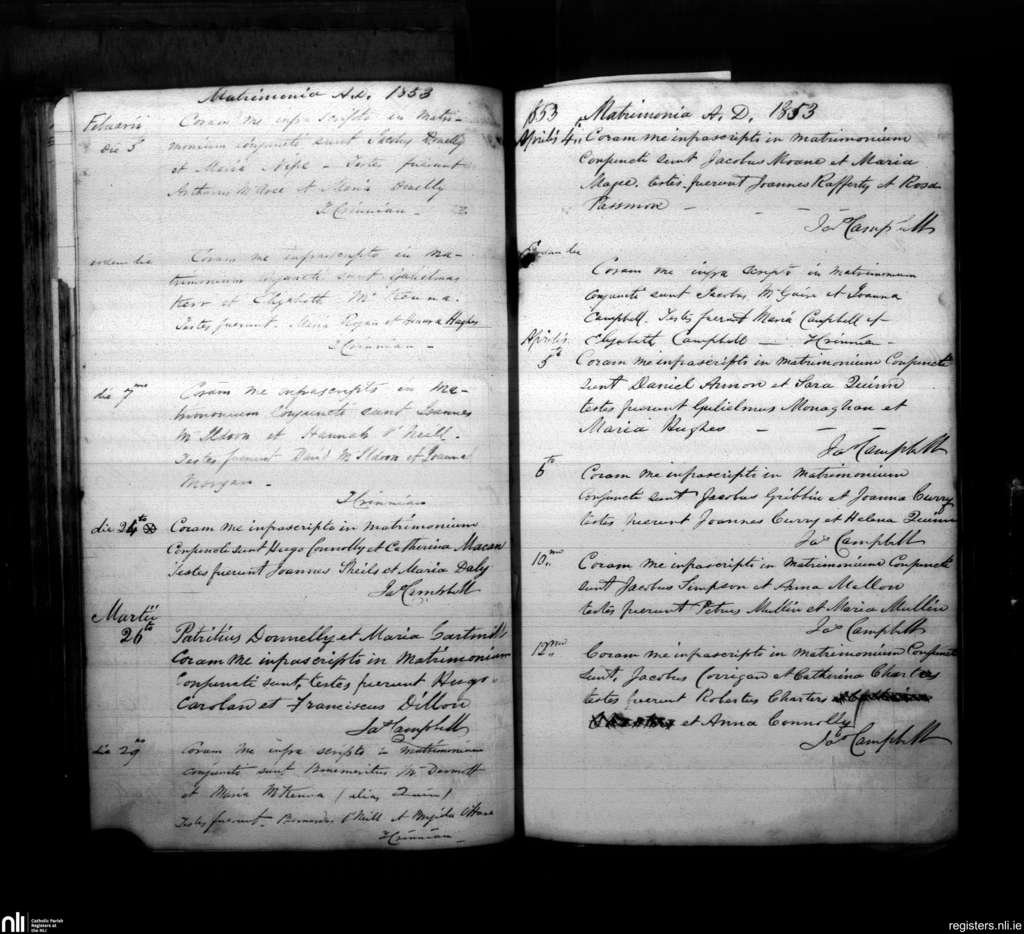 Matrimonia A.D. 1853
Februarii Coram me infra Scripto in Matri-
die 5 monium conjuncti sunt Jacobus Donelly
et Maria
et Maria Donelly
T Crinnion
eodem die Coram me infrascripto in ma-
trimonium conjuncti sunt Gulielmus
Kerr et Elizabeth McKenna.
Testes fuerunt. Maria Ryan et Honora Hughes
T Crinnion
die 7 Coram me infrascripto in Ma-
trimonium conjuncti sunt Joannes
et Hannah O'Neill.
Testes fuerunt David et Joanna
Morgan.
T Crinnion
die 24to Coram me infrascripto in matrimonium
Conjuncti sunt Hugo Connolly et Catherina Macan
Testes fuerunt Joannes Sheils et Maria Daly
Jas Campbell
Martii
26to Patritius Donnelly et Maria Cartmill
Coram me infrascripto in Matrimonium
Conjuncti sunt, testes fuerunt Hugo
Carolan et Franciscus Dillon
Jas Campbell
die 29 Coram me infra scripto in matrimonium
conjuncti sunt McDermott
et Maria McKenna (alias Quin)
Testes fuerunt Bernardus O'Neill et Brigida O'Hara
T Crinnion
1853 Matrimonia A.D. 1853
Aprilis 4 Coram me infrascripto in matrimonium
Conjuncti sunt Jacobus Moane et Maria
Magee. testes fuerunt Joannes Rafferty et Rosa
Passmore
Jas Campbell
Eodem die
Coram me infra scripto in matrimonium
conjuncti sunt Jacobus McGuire et Joanna
Campbell. Testes fuerunt Maria Campbell et
Aprilis Elizabeth Campbell T Crinnion
5to Coram me infrascripto in matrimonium Conjuncti
sunt Daniel Armon et Sara Quinn
testes fuerunt Gulielmus Monaghan et
Maria Hughes
Jas Campbell
6to Coram me infrascripto in Matrimonium
Conjuncti sunt Jacobus Gribbin et Joanna Curry
testes fuerunt Joannes Curry et Helena Quinn
Jas Campbell
10mo Coram me infrascripto in Matrimonium Conjuncti
sunt Jacobus Simpson et Anna Mallon
testes fuerunt Petrus Mullin et Maria Mullin
Jas Campbell
12mo Coram me infrascripto in matrimonium Conjuncti
Sunt, Jacobus Corrigan et Catherina Charters
testes fuerunt Robertus Charters
et Anna Connolly
Jas Campbell
nli Catholic Parish
Registers at
the NLI
registers.nli.ie